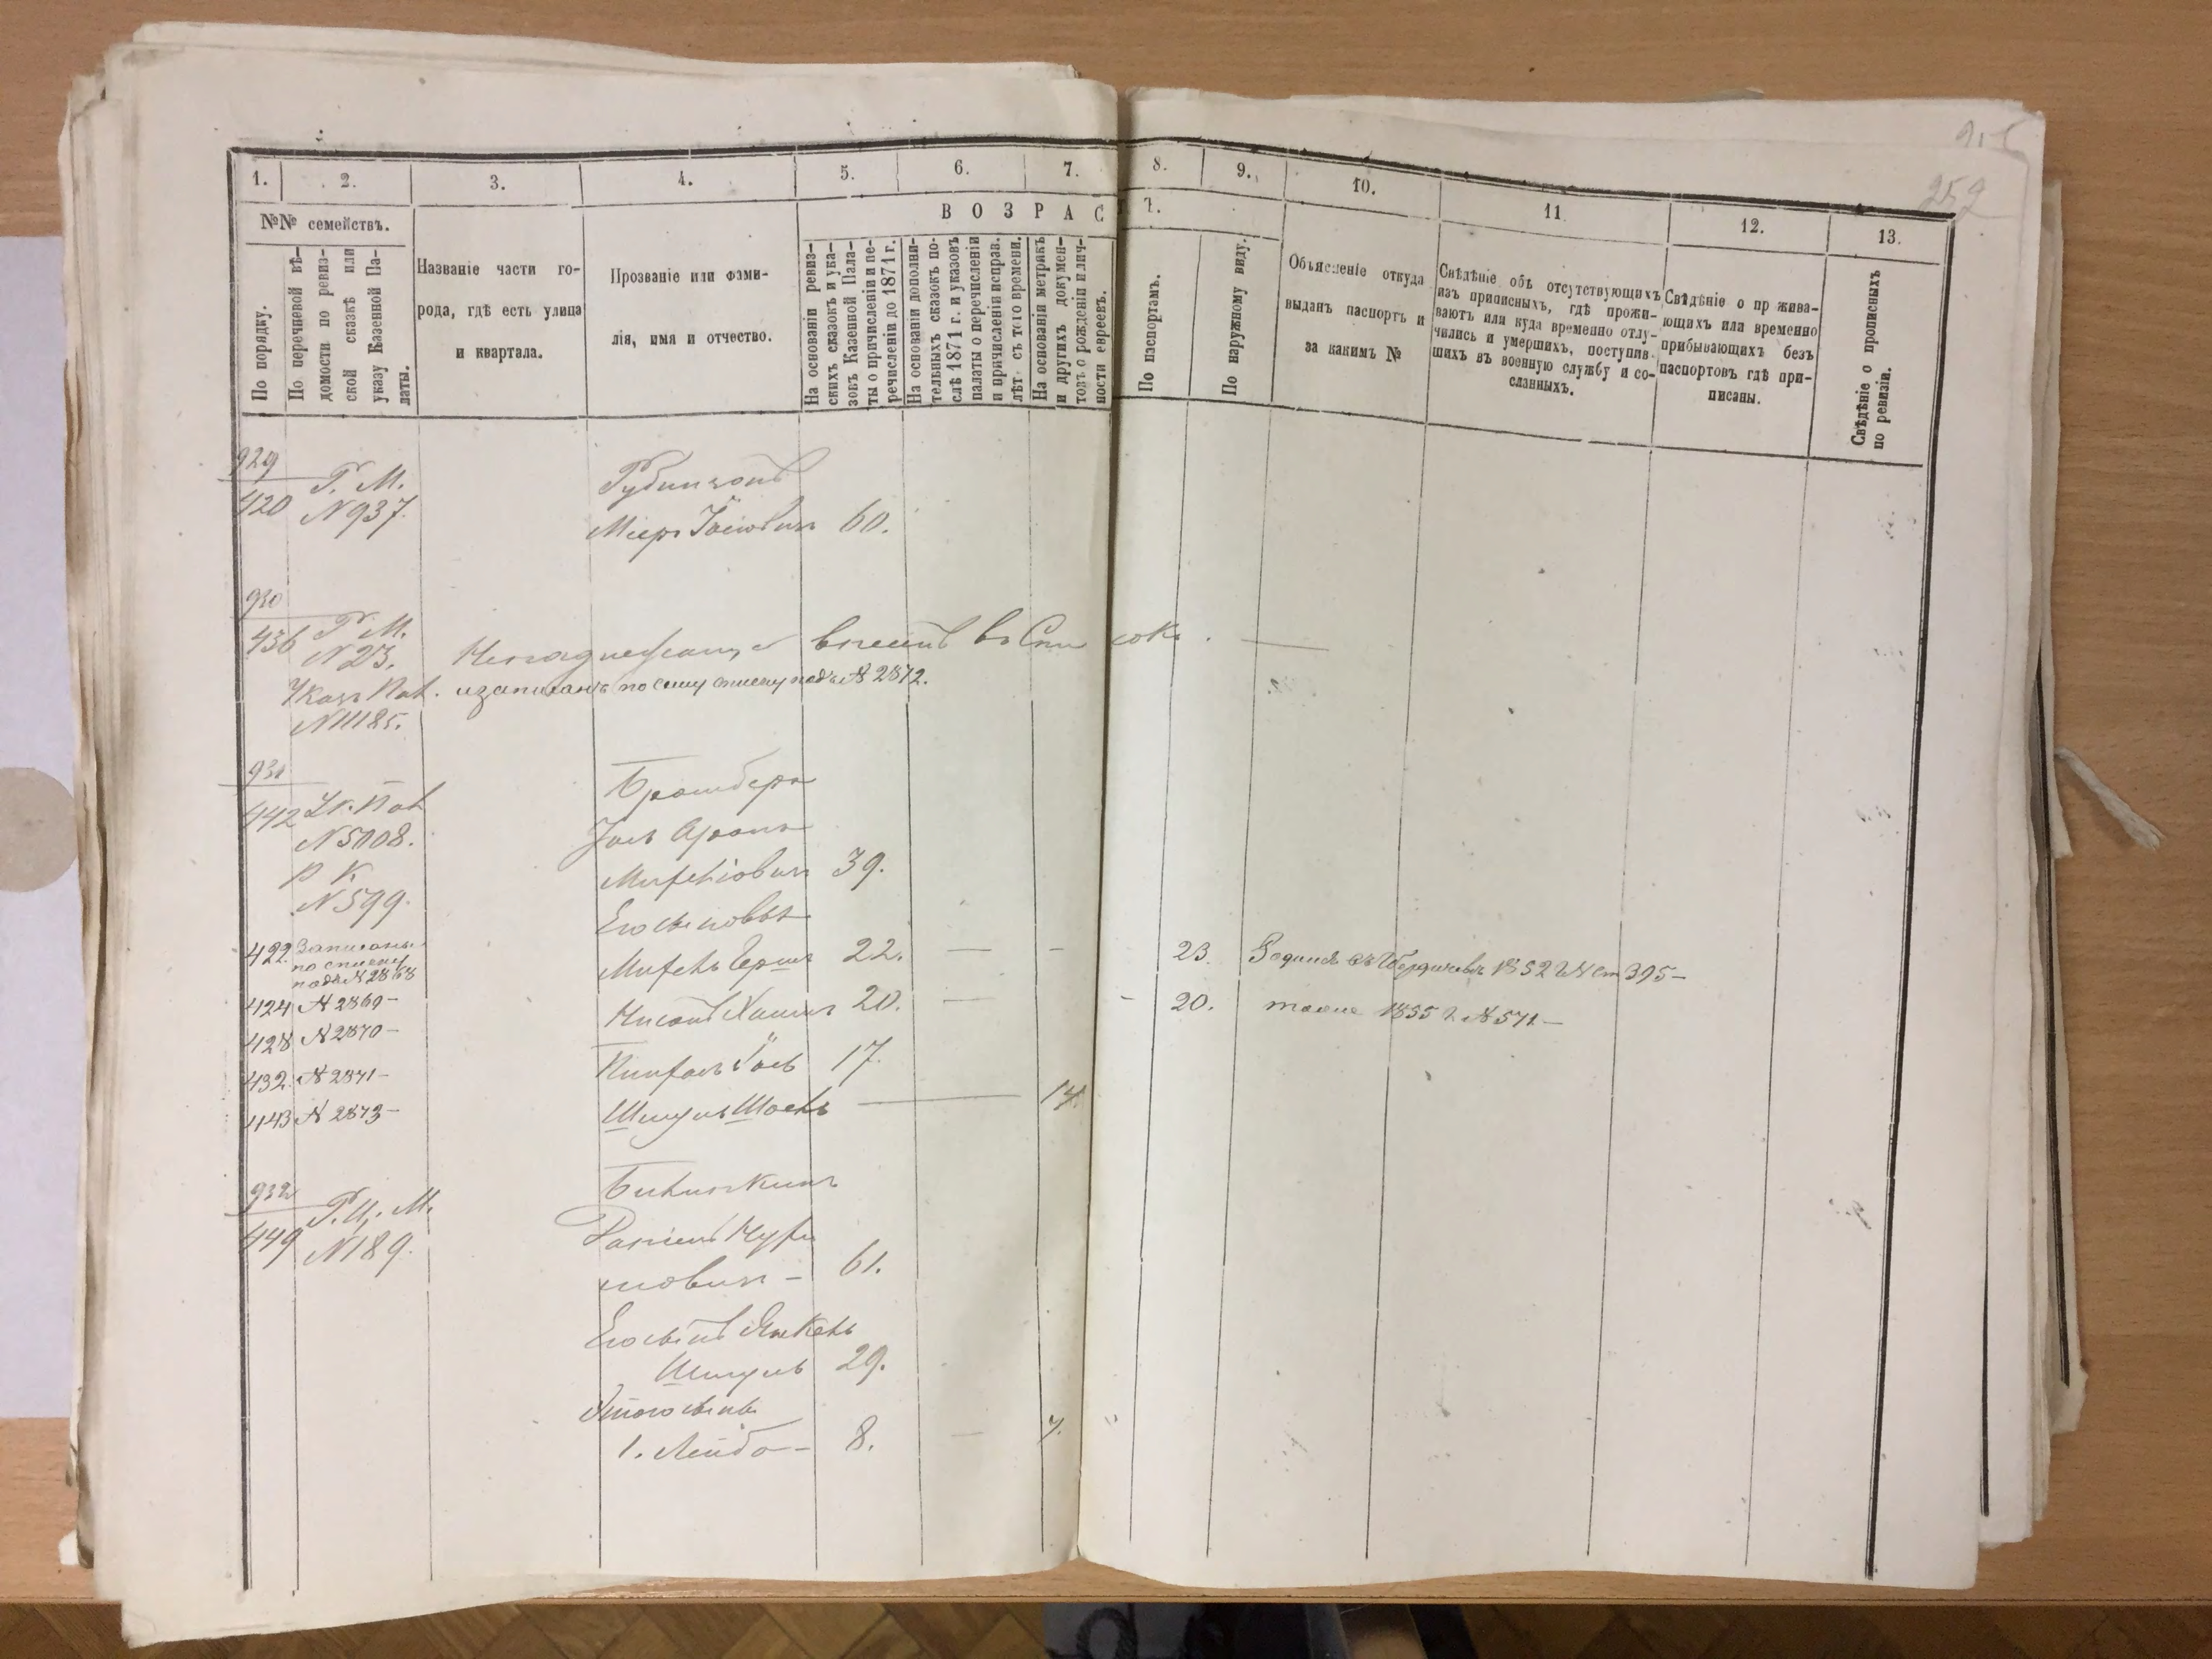 252
1. 2. 3. 4. 5. 6. 7. 8. 9. 10. 11. 12. 13.
№№ семействъ.
ВОЗРАСТ.
По порядку.
По перечневой вѣ-
домости по ревиз-
ской сказкѣ или
указу Казенной Па-
латы.
Названіе части го-
рода, гдѣ есть улица
и квартала.
Прозваніе или фами-
лія, имя и отчество.
На основаніи ревиз-
скихъ сказокъ и ука-
зовъ Казенной Пала-
ты о причисленіи и пе-
речисленіи до 1871 г.
На основаніи дополни-
тельныхъ сказокъ по-
слѣ 1871 г. и указовъ
палаты о перечисленіи
и причисленіи исправ.
лѣт. съ того времени.
На основаніи метрикъ
и другихъ докумен-
товъ о рожденіи и лич-
ности евреевъ.
По паспортамъ.
По наружному виду.
Объясненіе откуда
выданъ паспортъ и
за какимъ №
Свѣдѣніе объ отсутствующихъ
изъ приписныхъ, гдѣ прожи-
ваютъ или куда временно отлу-
чились и умершихъ, поступив-
шихъ въ военную службу и со-
сланныхъ.
Свѣдѣніе о пр жива-
ющихъ или временно
прибывающихъ безъ
паспортовъ гдѣ при-
писаны.
Свѣдѣніе о прописныхъ
по ревизіи.
929
Р. М. Рубинзонъ
420 N 937. Миеръ Іосіовичъ 60.
930
436 Р. М.
N 23. внесенъ въ Списокъ.
Указъ Пал. и записанъ по сему списку подъ № 2872.
N 11185.
931 Бромберъ
442 Ук. Пал.
N 5008.
Р К. 39.
N 599. Его сыновья
422 Записаны
по списку
подъ № 2868 22. — - - 23. Родился въ Бердичевѣ 1852 г. № ст 395 —
424 № 2869 — 20. — - 20. тоже 1855 г. № 571 —
428 № 2870 — 17.
432. № 2871 —
443 № 2873 — 14.
932
Р. Ц. М.
449 N 189.
новичъ — 61.
Его сынъ Янкель
Шмуль 29.
Этого сынъ
1. Лейба — 8. — 7.